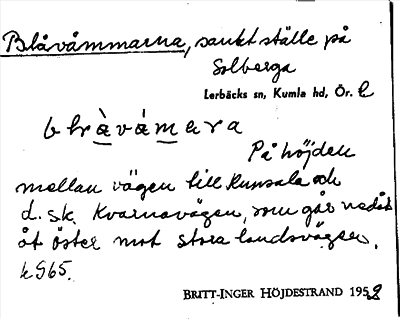 Blåvåmmarna, sankt ställe på
Solberga
Lerbäcks sn, Kumla hd, Ör. l
blråvámara
På höjden
mellan vägen till Runsala och
d. sk. Kvarnavägen, som går nedåt
åt öster mot stora landsvägen.
k S65.
BRITT-INGER HÖJDESTRAND 1958